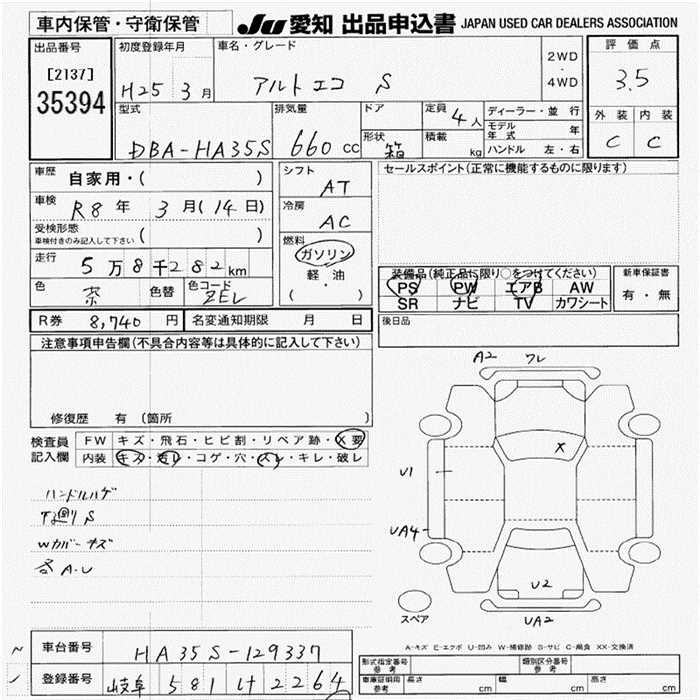 車内保管・守衛保管
JU 愛知 出品申込書 JAPAN USED CAR DEALERS ASSOCIATION
出品番号
[2137]
35394
初度登録年月
H25 3月
車名・グレード
アルトエコ S
2WD
・
4WD
評価点
3.5
外装 内装
C C
型式
DBA-HA35S
排気量
660 cc
ドア
形状
箱
定員
4人
積載
kg
ディーラー・並行
モデル年式 年
ハンドル 左・右
車歴
自家用・( )
車検
R8年 3月(14日)
受検形態
車検付きのみ記入して下さい ( )
走行
5万8千282km
色
茶
色替
色コード
ZEL
シフト
AT
冷房
AC
燃料
ガソリン
・
軽油
( )
セールスポイント(正常に機能するものに限ります)
装備品(純正品に限り○をつけてください)
PS PW エアB AW
SR ナビ TV カワシート
新車保証書
有・無
R券 8,740円
名変通知期限 月 日
後日品
注意事項申告欄(不具合内容等は具体的に記入して下さい)
修復歴 有 (箇所 )
検査員
記入欄
FW キズ・飛石・ヒビ割・リペア跡・X要
内装 キズ・汚レ・コゲ・穴・スレ・キレ・破レ
ハンドルハゲ
下廻りS
Wカバーキズ
各A.U
A2 ワレ
X
U1
UA4
U2
UA2
スペア
A-キズ E-エクボ U-凹み W-補修跡 S-サビ C-腐食 XX-交換済
車台番号
HA35S-129337
登録番号
岐阜 581 け 2264
型式指定番号
参考
類別区分番号
参考
車庫証明用
参考
長さ cm 幅 cm 高さ cm